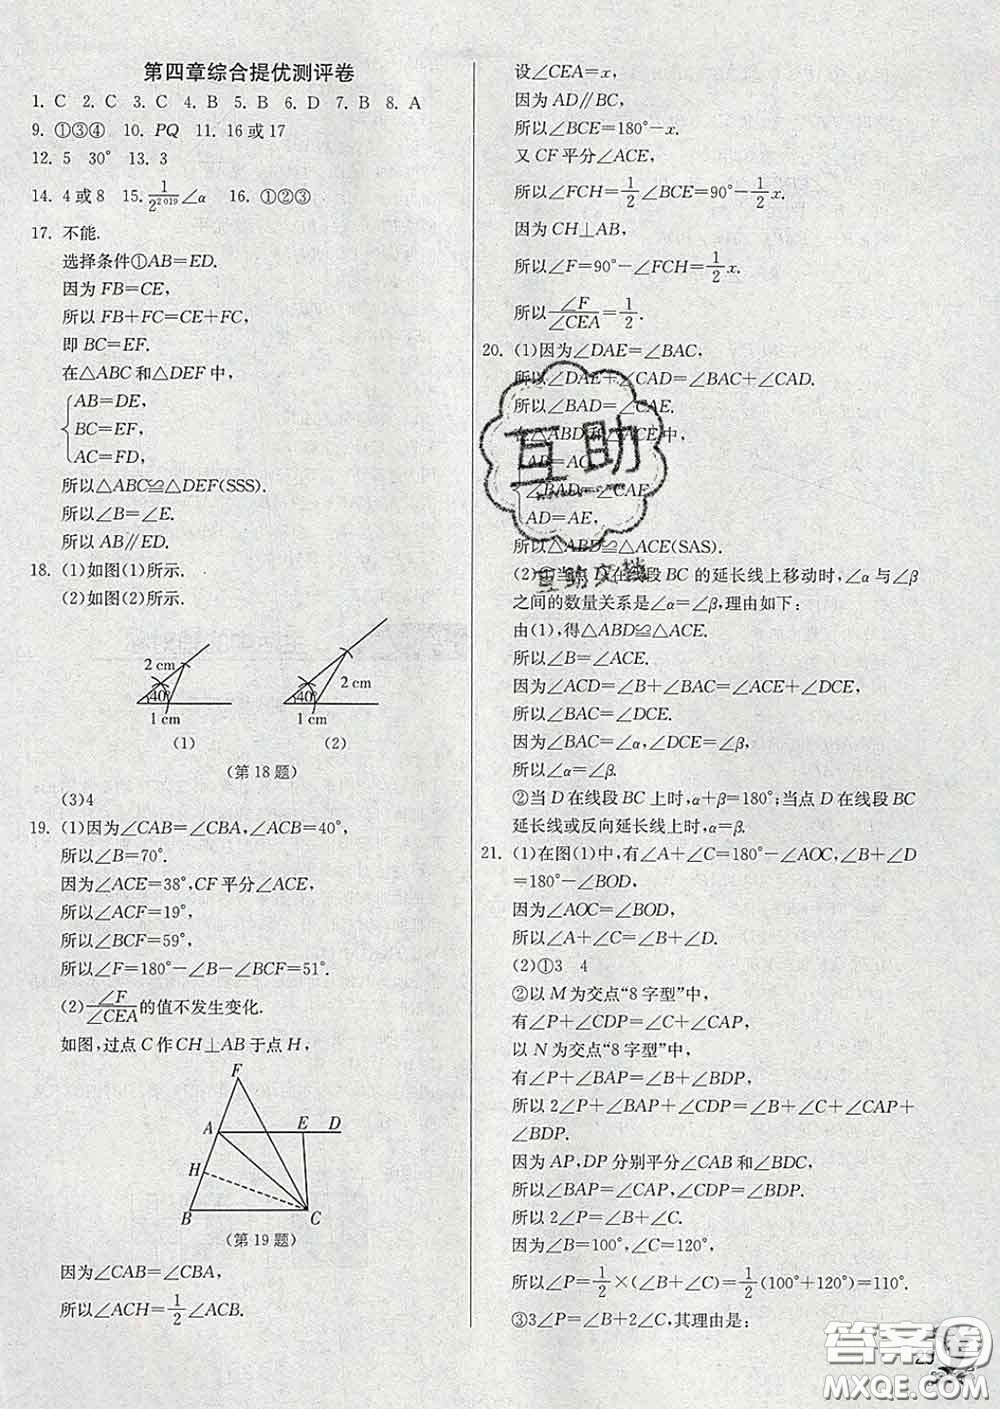 第四章综合提优测评卷
1. C 2. C 3. C 4. B 5. B 6. D 7. B 8. A
9. ①③④ 10. PQ 11. 16或17
12. 5 30° 13. 3
14. 4或8 15. 1/2^2019 ∠α 16. ①②③
17. 不能.
选择条件①AB=ED.
因为FB=CE,
所以FB+FC=CE+FC,
即BC=EF.
在△ABC和△DEF中,
AB=DE,
BC=EF,
AC=FD,
所以△ABC≌△DEF(SSS).
所以∠B=∠E.
所以AB∥ED.
18. (1)如图(1)所示.
(2)如图(2)所示.
2 cm 40° 1 cm (1)
2 cm 40° 1 cm (2)
(第18题)
(3)4
19. (1)因为∠CAB=∠CBA,∠ACB=40°,
所以∠B=70°.
因为∠ACE=38°,CF平分∠ACE,
所以∠ACF=19°,
所以∠BCF=59°,
所以∠F=180°-∠B-∠BCF=51°.
(2)∠F/∠CEA的值不发生变化.
如图,过点C作CH⊥AB于点H,
F
A E D
H
B C
(第19题)
因为∠CAB=∠CBA,
所以∠ACH=1/2∠ACB.
设∠CEA=x,
因为AD∥BC,
所以∠BCE=180°-x.
又CF平分∠ACE,
所以∠FCH=1/2∠BCE=90°-1/2x.
因为CH⊥AB,
所以∠F=90°-∠FCH=1/2x.
所以∠F/∠CEA=1/2.
20. (1)因为∠DAE=∠BAC,
所以∠DAE+∠CAD=∠BAC+∠CAD.
所以∠BAD=∠CAE.
△ABD和△ACE中,
∠BAD=∠CAE
AD=AE,
所以△ABD≌△ACE(SAS).
(2)①当点D在线段BC的延长线上移动时,∠α与∠β
之间的数量关系是∠α=∠β,理由如下:
由(1),得△ABD≌△ACE.
所以∠B=∠ACE.
因为∠ACD=∠B+∠BAC=∠ACE+∠DCE,
所以∠BAC=∠DCE.
因为∠BAC=∠α,∠DCE=∠β,
所以∠α=∠β.
②当D在线段BC上时,α+β=180°;当点D在线段BC
延长线或反向延长线上时,α=β.
21. (1)在图(1)中,有∠A+∠C=180°-∠AOC,∠B+∠D
=180°-∠BOD,
因为∠AOC=∠BOD,
所以∠A+∠C=∠B+∠D.
(2)①3 4
②以M为交点“8字型”中,
有∠P+∠CDP=∠C+∠CAP,
以N为交点“8字型”中,
有∠P+∠BAP=∠B+∠BDP,
所以2∠P+∠BAP+∠CDP=∠B+∠C+∠CAP+
∠BDP.
因为AP,DP分别平分∠CAB和∠BDC,
所以∠BAP=∠CAP,∠CDP=∠BDP,
所以2∠P=∠B+∠C.
因为∠B=100°,∠C=120°,
所以∠P=1/2×(∠B+∠C)=1/2(100°+120°)=110°.
③3∠P=∠B+2∠C,其理由是:
互助
互助文档
答案圈
MXQE.COM